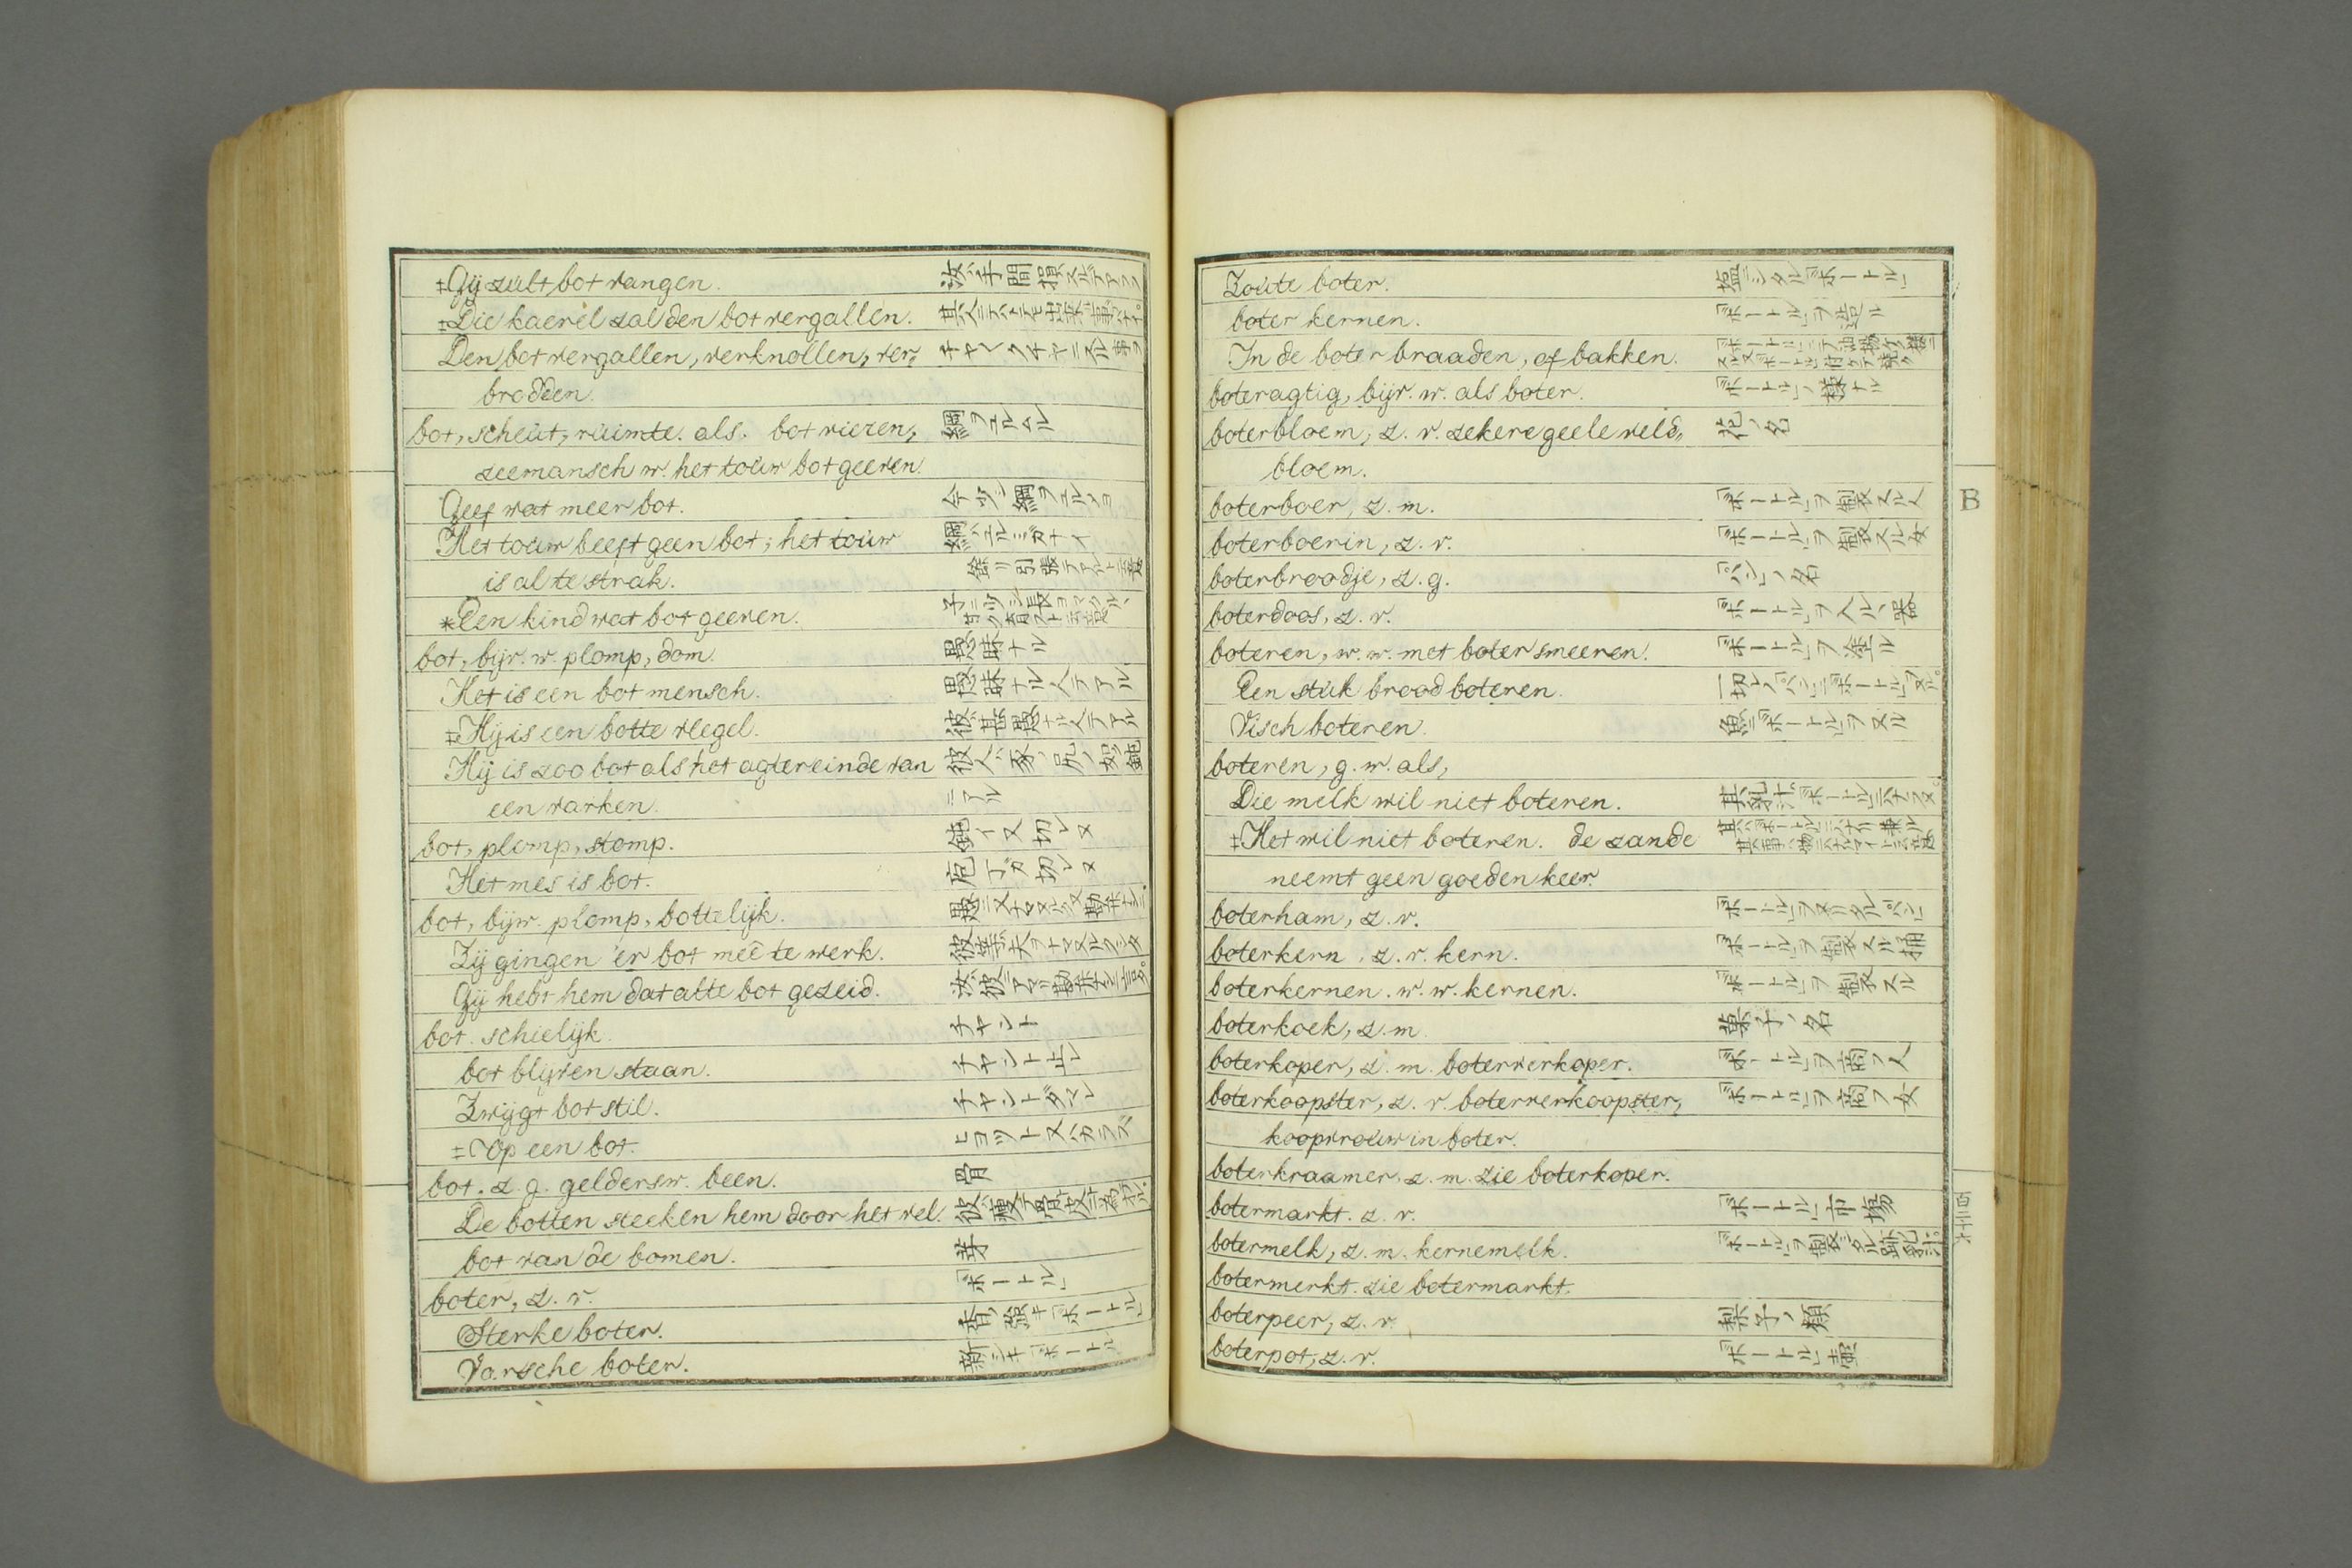 ‡Gij zult bot vangen. 汝ハ手間損スルデアラフ
‡Die kaerel zal den bot vergallen.
Den bot vergallen, verknollen, ver„
brodden.
bot, scheut, ruimte. als. bot vieren, 綱ヲユルムル
zeemansch w. het touw bot geeven.
Geef wat meer bot. 今少シ綱ヲユルメヨ
Het touw heeft geen bot; het touw 綱ハユルミガナイ
is al te strak. 餘リ引張テアルト云意
*Een kind wat bot geeven.
bot, bijv. w. plomp, dom. 愚昧ナル
Het is een bot mensch. 愚昧ナル人テアル
‡Hij is een botte vlegel. 彼ハ甚愚ナル人テアル
Hij is zoo bot als het agtereinde van 彼人ハ豕ノ尻ノ如ク鈍
een varken. ニアル
bot, plomp, stomp. 鈍イ又切レヌ
Het mes is bot. 庖丁ガ切レヌ
bot, bijw. plomp, bottelijk.
Zij gingen 'er bot meê te werk.
Gij hebt hem dat alte bot gezeid.
bot. schielijk. チヤント
bot blijven staan. チヤント止レ
Zwijgt bot stil. チヤントダマレ
‡Op een bot. ヒヨツト又ハカラズ
bot. z. g. geldersw. been. 骨
De botten steeken hem door het vel.
bot van de bomen. 芽
boter, z. v. 「ボートル」
Sterke boter. 香ノ強キ「ボートル」
Varsche boter. 新シキ「ボートル」
Zoute boter. 塩シタル「ボートル」
boter kernen. 「ボートル」ヲ造ル
In de boter braaden, of bakken.
boteragtig, bijv. w. als boter. 「ボートル」ノ様ナル
boterbloem, z. v. zekere geele veld„ 花ノ名
bloem.
boterboer, z. m. 「ボートル」ヲ製スル人
boterboerin, z. v. 「ボートル」ヲ製スル女
boterbroodje, z. g. 「パン」ノ名
boterdoos, z. v. 「ボートル」ヲ入ルヽ器
boteren, w. w. met boter smeeren. 「ボートル」ヲ塗ル
Een stuk brood boteren. 一切レノ「パン」ニ「ボートル」ヌル。
Visch boteren. 魚ニ「ボートル」ヲヌル
boteren, g. w. als,
Die melk wil niet boteren. 其乳汁ハ「ボートル」ニナラヌ。
‡Het wil niet boteren. de zande
neemt geen goeden keer.
boterham, z. v. 「ボートル」ヲヌリタル「パン」
boterkern, z. v. kern. 「ボートル」ヲ製スル桶
boterkernen. w. w. kernen. 「ボートル」ヲ製スル
boterkoek, z. m 菓子ノ名
boterkoper, z. m. boterverkoper. 「ボートル」ヲ商フ人
boterkoopster, z. v. boterverkoopster, 「ボートル」ヲ商フ女
koopvrouw in boter.
boterkraamer, z. m. zie boterkoper.
botermarkt. z. v. 「ボートル」市場
botermelk, z. m. kernemelk. 「ボートル」ヲ製シタル跡ノ乳汁
botermerkt. zie botermarkt.
boterpeer, z. v. 梨子ノ類
boterpot, z. v. 「ボートル」壷
B